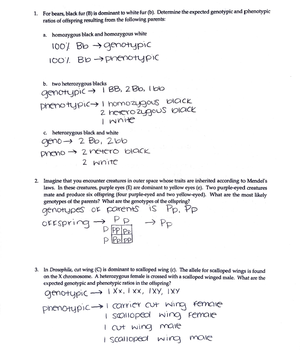 1. For bears, black fur (B) is dominant to white fur (b). Determine the expected genotypic and phenotypic
ratios of offspring resulting from the following parents:
a. homozygous black and homozygous white
100% Bb → genotypic
100% Bb → phenotypic
b. two heterozygous blacks
genotypic → 1 BB, 2 Bb, 1 bb
phenotypic → 1 homozygous black
2 heterozygous black
1 white
c. heterozygous black and white
geno → 2 Bb, 2bb
pheno → 2 hetero black
2 white
2. Imagine that you encounter creatures in outer space whose traits are inherited according to Mendel's
laws. In these creatures, purple eyes (E) are dominant to yellow eyes (e). Two purple-eyed creatures
mate and produce six offspring (four purple-eyed and two yellow-eyed). What are the most likely
genotypes of the parents? What are the genotypes of the offspring?
genotypes of parents is Pp, Pp
offspring → P P → Pp
P PP Pp
P
3. In Drosophila, cut wing (C) is dominant to scalloped wing (c). The allele for scalloped wings is found
on the X chromosome. A heterozygous female is crossed with a scalloped winged male. What are the
expected genotypic and phenotypic ratios in the offspring?
genotypic → 1 Xx, 1 xx, 1XY, 1xY
phenotypic → 1 carrier cut wing female
1 scalloped wing female
1 cut wing male
1 scalloped wing male